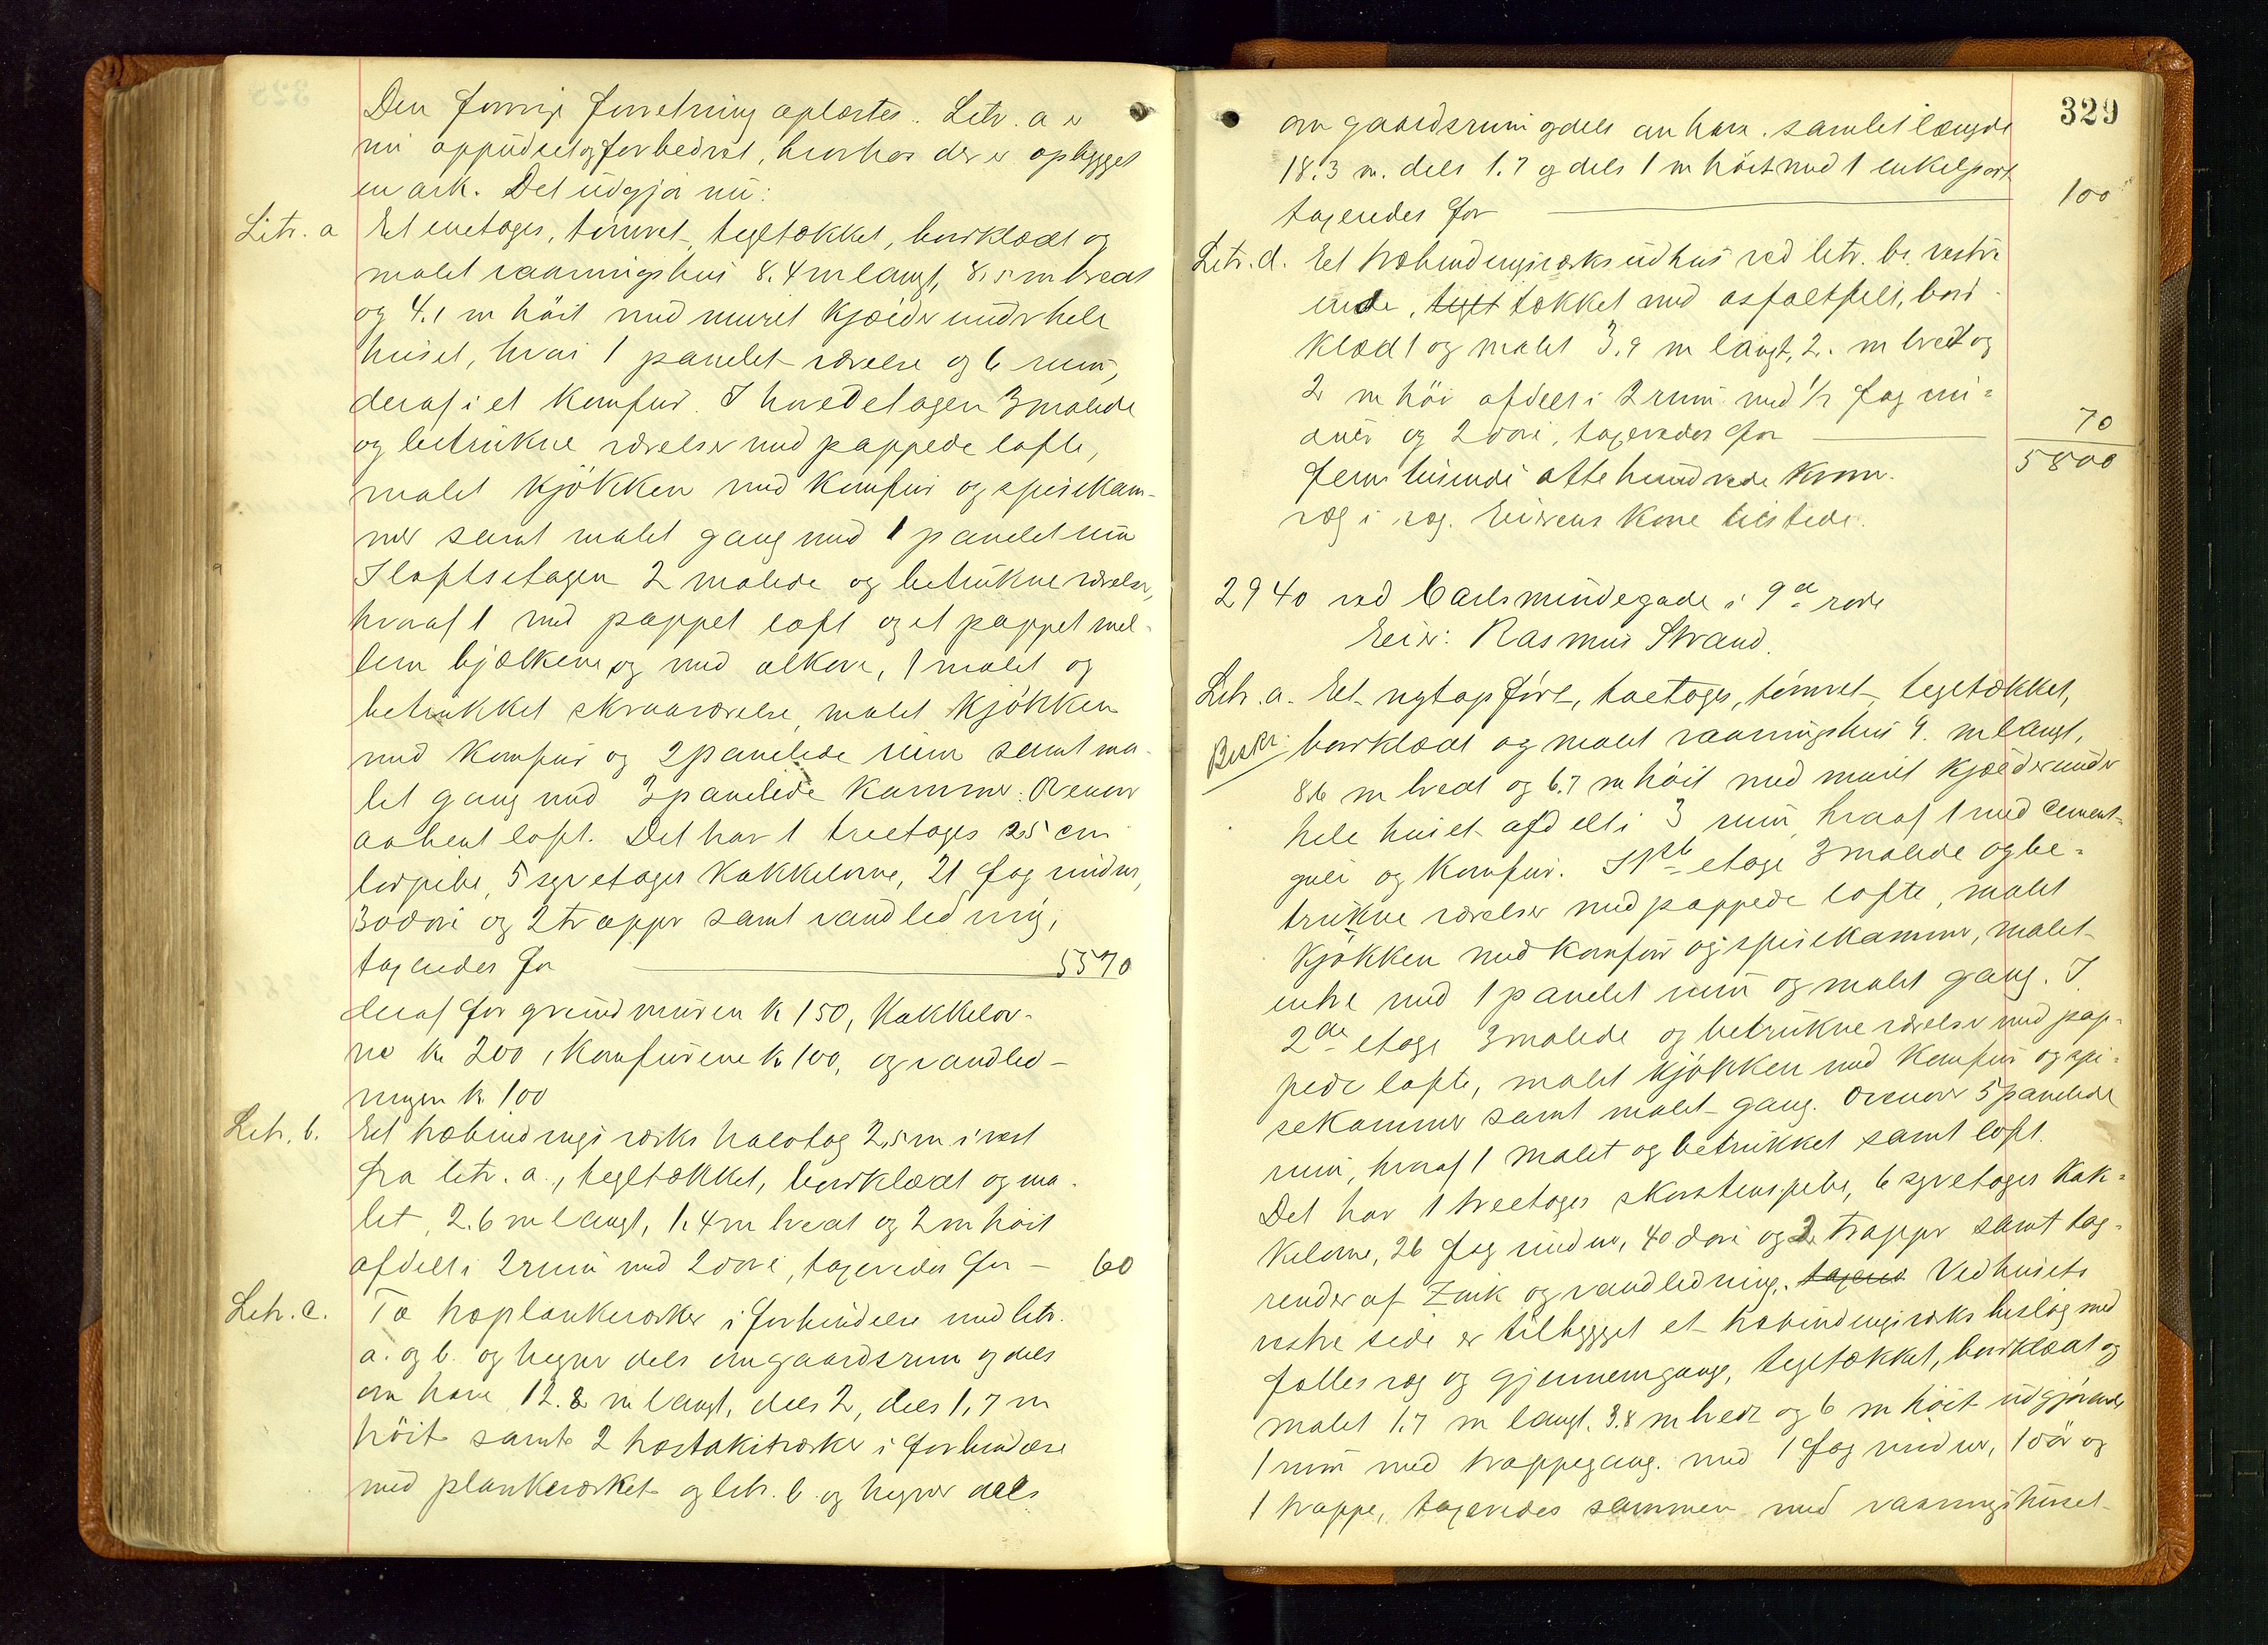 Den forrige forretning oplæstes. Litr. a er
nu oppudset og forbedret, hvorhos der er opbygget
en ark. Det udgjør nu:
Litr. a Et enetages, tømret, tegltækket, bordklædt og
malet vaaningshus 8.4 m langt, 8,5 m bredt
og 4.1 m høit med muret kjælder under hele
huset, hvori 1 panelet værelse og 6 rum,
deraf i et komfur. I hovedetagen 3 malede
og betrukne værelser med pappede lofte,
malet kjøkken med komfur og spisekam-
mer samt malet gang med 1 panelet rum
I loftsetagen 2 malede og betrukne værelser,
hvoraf 1 med pappet loft og et pappet mel-
lem bjælkerne og med alkove, 1 malet og
betrukket skraaværelse, malet kjøkken
med komfur og 2 panelede rum samt ma-
let gang med 3 panelede kammer. Ovenover
aabent loft. Det har 1 treetages 25 cm
lerpibe, 5 syvetages kakkelovne, 21 fag vinduer,
30 døre og 2 trapper samt vandledning,
taxeredes for 5570
deraf for grundmuren k 150, kakkelov-
ne k 200, komfurene k 100, og vandled-
ningen k 100
Litr. b. Et træbindingsværks halvtag 2,5 m i vest
fra litr. a., tegltækket, bordklædt og ma-
let, 2.6 m langt, 1.4 m bredt og 2 m høit
afdelt i 2 rum med 2 døre, taxeredes for – 60
Litr. c. To træplankeværker i forbindelse med litr.
a. og b. og hegner dels om gaardsrum og dels
om have 12.8 m langt, dels 2, dels 1,7 m
høit samt 2 træstakitværker i forbindelse
med plankeværket og litr. b. og hegner dels
329
om gaardsrum og dels om have. samlet længde
18.3 m. dels 1.7 og dels 1 m høit med 1 enkelport
taxeredes for 100
Litr. d. Et træbindingsværks udhus ved litr. b's. vestre
ende, tegl tækket med asfaltfilt, bord-
klædt og malet 3.9 m langt, 2. m bredt og
2 m høi afdelt i 2 rum med 1/2 fag vin-
duer og 2 døre, taxeredes for 70
5800
Fem tusinde otte hundrede kroner.
væg i væg. Eierens kone tilstede.
2940 ved Carlsmindegade i 9de rode
Eier: Rasmus Strand.
Litr. a. Et nytopført, toetages, tømret, tegltækket,
Beskr. bordklædt og malet vaaningshus 9. m langt,
8.6 m bredt og 6.7 m høit med muret kjælder under
hele huset afdelt i 3 rum, hvoraf 1 med cement-
gulv og komfur. I 1ste etage 3 malede og be-
trukne værelser med pappede lofte, malet
kjøkken med komfur og spisekammer, malet
entre med 1 panelet rum og malet gang. I
2den etage 3 malede og betrukne værelser med pap-
pede lofte, malet kjøkken med komfur og spi-
sekammer samt malet gang. Ovenover 5 panelede
rum, hvoraf 1 malet og betrukket samt loft.
Det har 1 treetages skorstenspibe, 6 syvetages kak-
kelovne, 26 fag vinduer, 40 døre og 2 trapper samt tag-
render af Zink og vandledning. taxeres Ved husets
vestre side er tilbygget et træbindingsværks bislag med
fælles væg og gjennemgang, tegltækket, bordklædt og
malet 1.7 m langt, 3.8 m bredt og 6 m høit udgjørende
1 rum med trappegang. med 1 fag vinduer, 1 dør og
1 trappe, taxeredes sammen med vaaningshuset